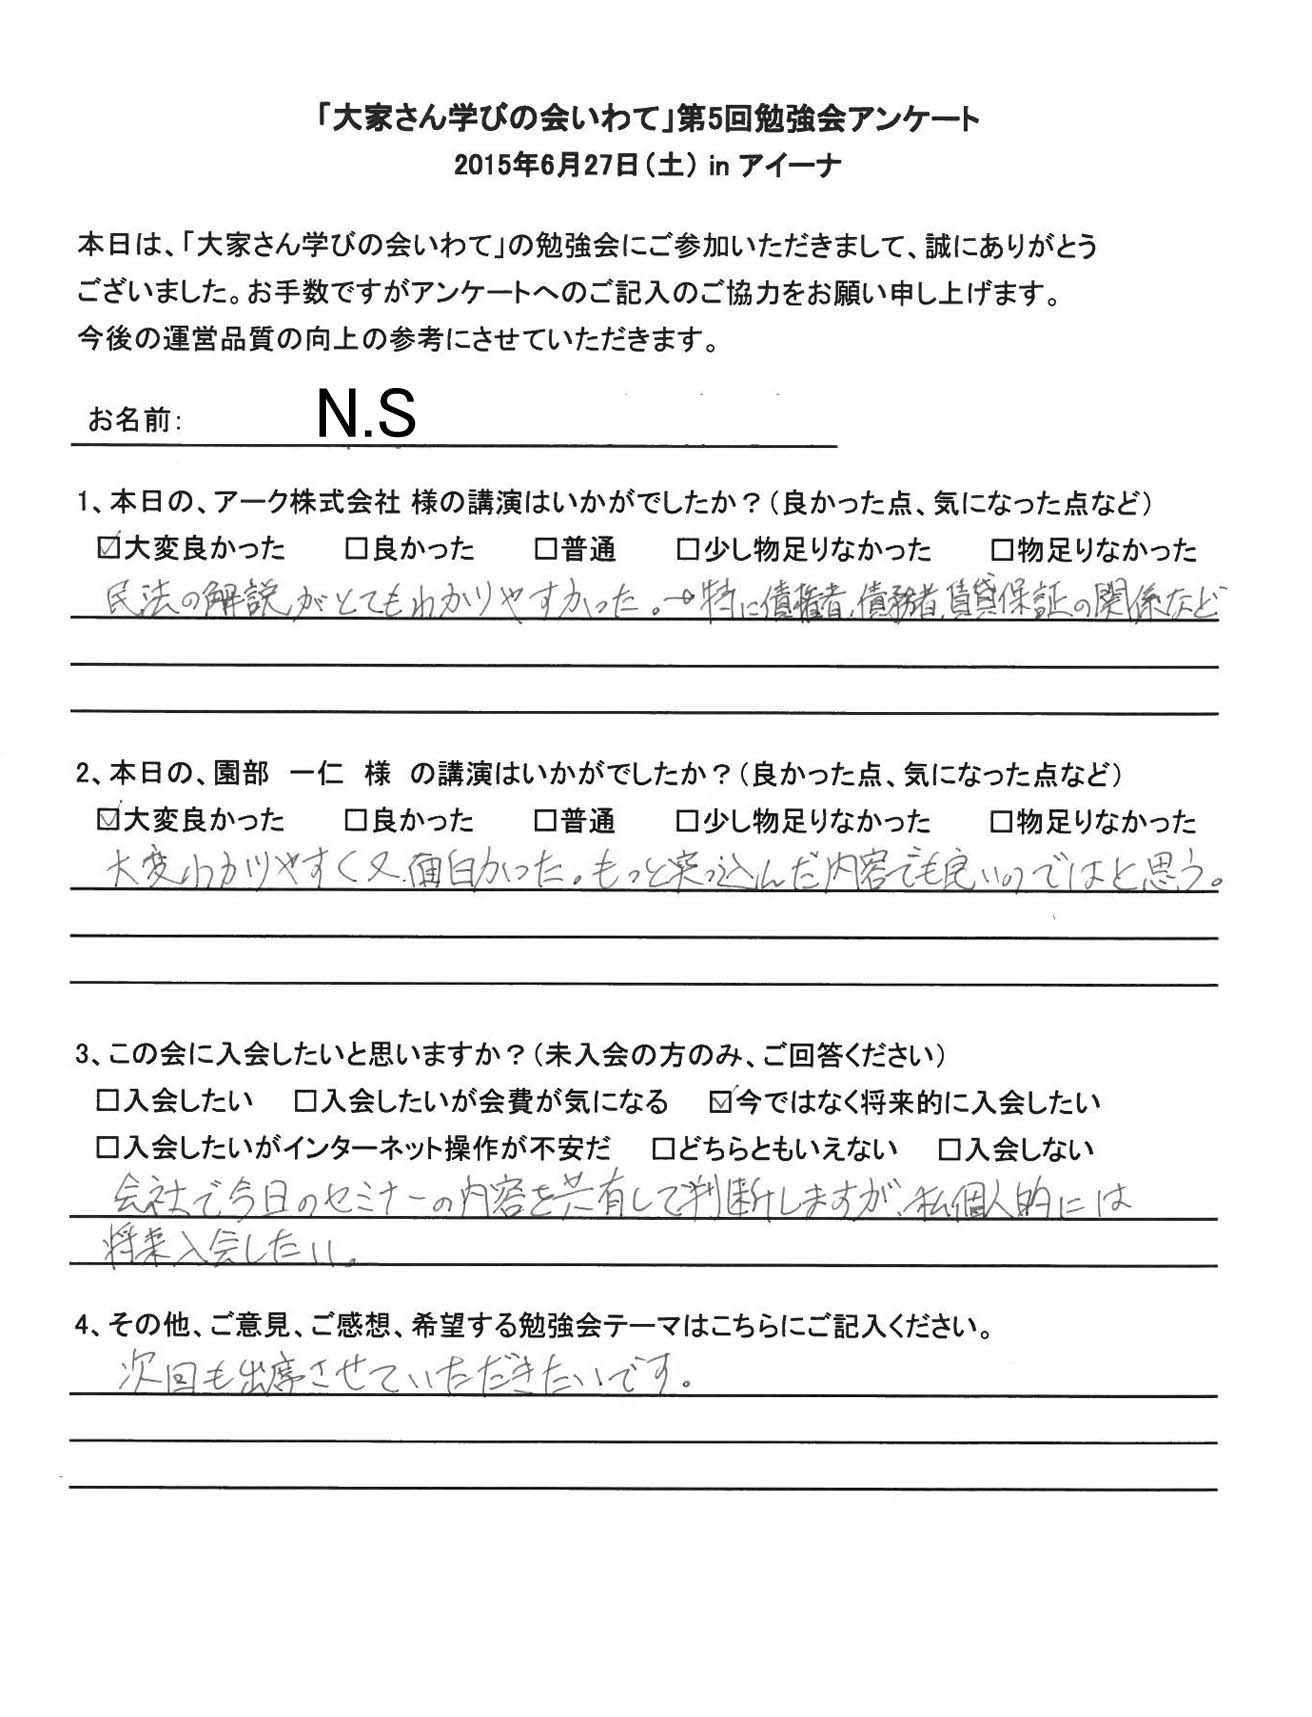 「大家さん学びの会いわて」第5回勉強会アンケート
2015年6月27日（土） in アイーナ
本日は、「大家さん学びの会いわて」の勉強会にご参加いただきまして、誠にありがとう
ございました。お手数ですがアンケートへのご記入のご協力をお願い申し上げます。
今後の運営品質の向上の参考にさせていただきます。
お名前： N.S
1、本日の、アーク株式会社 様の講演はいかがでしたか？（良かった点、気になった点など）
☑大変良かった □良かった □普通 □少し物足りなかった □物足りなかった
民法の解説がとてもわかりやすかった。→特に債権者、債務者、賃貸保証の関係など
2、本日の、園部 一仁 様 の講演はいかがでしたか？（良かった点、気になった点など）
☑大変良かった □良かった □普通 □少し物足りなかった □物足りなかった
大変わかりやすく又、面白かった。もっと突っ込んだ内容でも良いのではと思う。
3、この会に入会したいと思いますか？（未入会の方のみ、ご回答ください）
□入会したい □入会したいが会費が気になる ☑今ではなく将来的に入会したい
□入会したいがインターネット操作が不安だ □どちらともいえない □入会しない
会社で今日のセミナーの内容を共有して判断しますが、私個人的には
将来入会したい。
4、その他、ご意見、ご感想、希望する勉強会テーマはこちらにご記入ください。
次回も出席させていただきたいです。